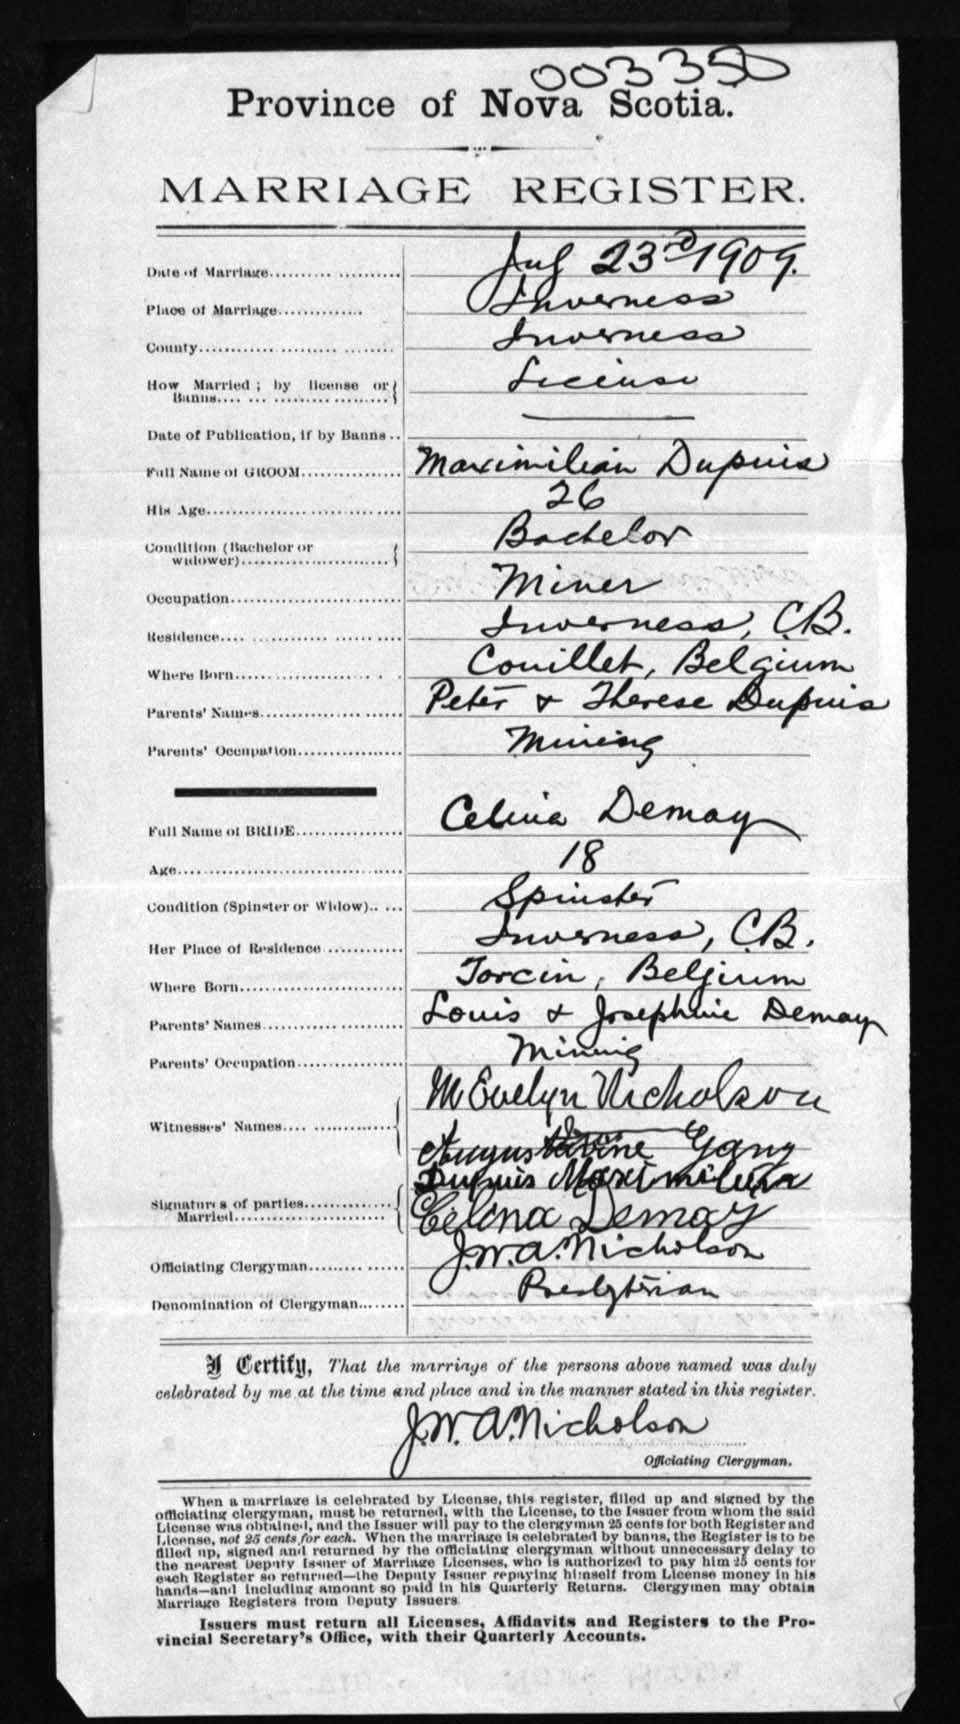 003350
Province of Nova Scotia.
MARRIAGE REGISTER.
Date of Marriage.................... July 23rd 1909.
Place of Marriage............. Inverness
County............................ Inverness
How Married ; by license or
Banns.... ... ..................... License
Date of Publication, if by Banns .. ———
Full Name of GROOM................. Maximilian Dupuis
His Age............................ 26
Condition (Bachelor or
widower)........................ Bachelor
Occupation............................ Miner
Residence.... ............ ...... ..... Inverness, C.B.
Where Born........................ . . Couillet, Belgium
Parents' Names........................ Peter & Therese Dupuis
Parents' Occupation................. Mining
Full Name of BRIDE................. Celina Demay
Age.................................... 18
Condition (Spinster or Widow).. ... Spinster
Her Place of Residence ............ Inverness, C.B.
Where Born........................... Belgium
Parents' Names........................ Louis & Josephine Demay
Parents' Occupation................. Mining
Witnesses' Names.... ............... M Evelyn Nicholson
Gany
Dupuis Maximilien
Signatures of parties.............
Married........................ Celina Demay
Officiating Clergyman............... J.W.A. Nicholson
Denomination of Clergyman......... Presbyterian
I Certify, That the marriage of the persons above named was duly
celebrated by me at the time and place and in the manner stated in this register.
J.W. A. Nicholson
Officiating Clergyman.
When a marriage is celebrated by License, this register, filled up and signed by the
officiating clergyman, must be returned, with the License, to the Issuer from whom the said
License was obtained, and the Issuer will pay to the clergyman 25 cents for both Register and
License, not 25 cents for each. When the marriage is celebrated by banns, the Register is to be
filled up, signed and returned by the officiating clergyman without unnecessary delay to
the nearest Deputy Issuer of Marriage Licenses, who is authorized to pay him 25 cents for
each Register so returned—the Deputy Issuer repaying himself from License money in his
hands—and including amount so paid in his Quarterly Returns. Clergymen may obtain
Marriage Registers from Deputy Issuers.
Issuers must return all Licenses, Affidavits and Registers to the Pro-
vincial Secretary's Office, with their Quarterly Accounts.